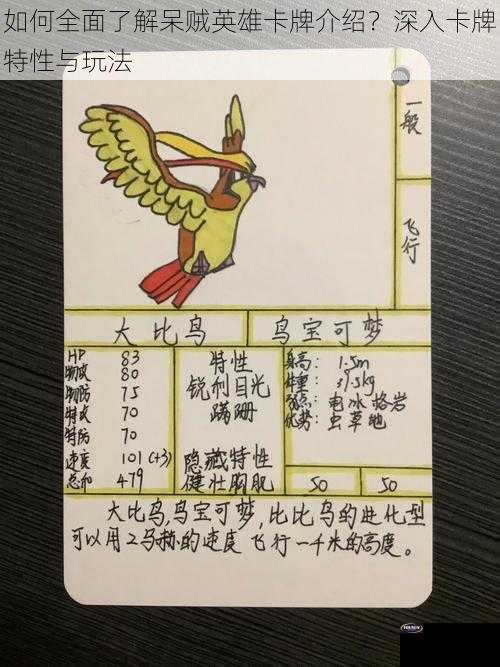 如何全面了解呆贼英雄卡牌介绍？深入卡牌
特性与玩法
一般
飞行
大比鸟
鸟宝可梦
HP 83
物攻 80
物防 75
特攻 70
特防 70
速度 101 (+3)
总和 479
特性
锐利目光
蹒跚
隐藏特性
健壮胸肌
身高: 1.5m
体重: 39.5kg
弱点: 电冰格岩
优势: 虫草地
50
50
大比鸟,鸟宝可梦,比比鸟的进化型
可以用2马赫的速度飞行一千米的高度。